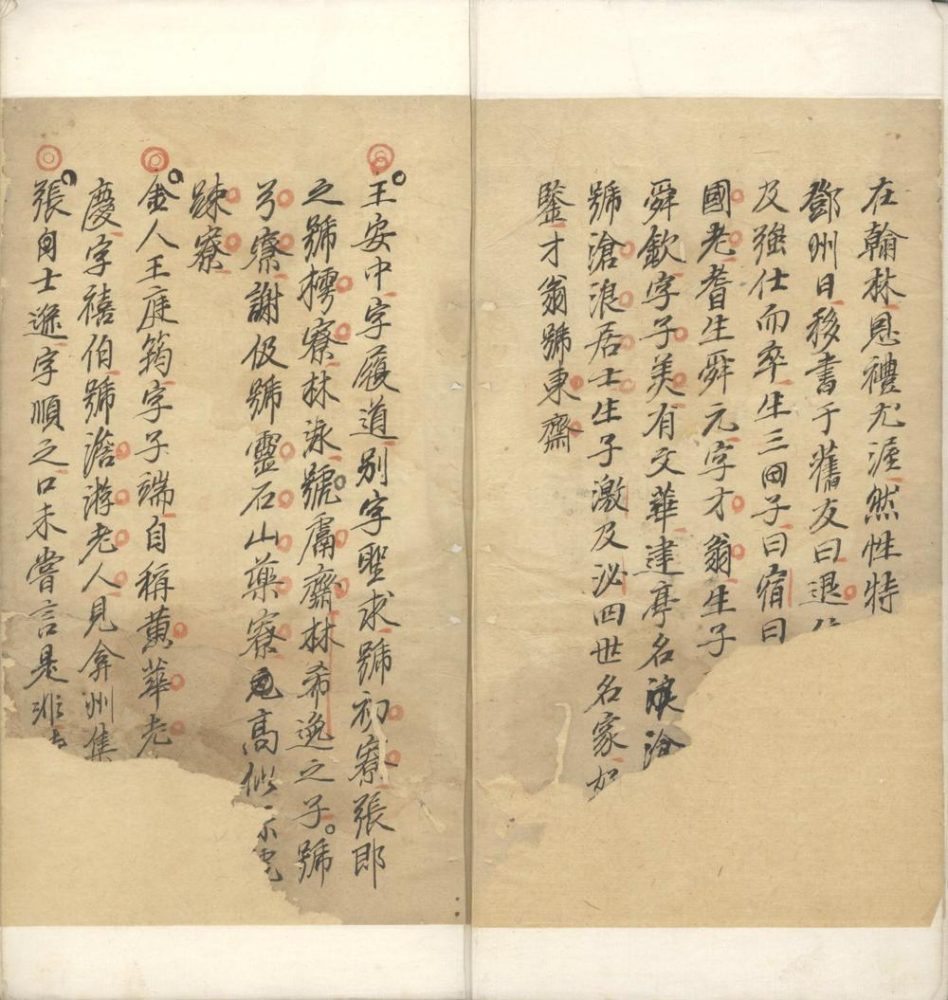 在翰林恩禮尤渥然性特
鄧州日移書于舊友曰退
及強仕而卒生三子曰宿曰
國老耆生舜元字才翁生子
舜欽字子美有文華建亭名滄
號滄浪居士生子激及泌四世名家如
鑒才翁號東齋
王安中字履道別字聖求號初寮張即
之號樗寮林泳號鬳齋林希逸之子號
弓寮謝伋號靈石山藥寮高似孫號
踈寮
金人王庭筠字子端自稱黃華老
慶字禧伯號澹游老人見弇州集
張自士遜字順之口未嘗言是非